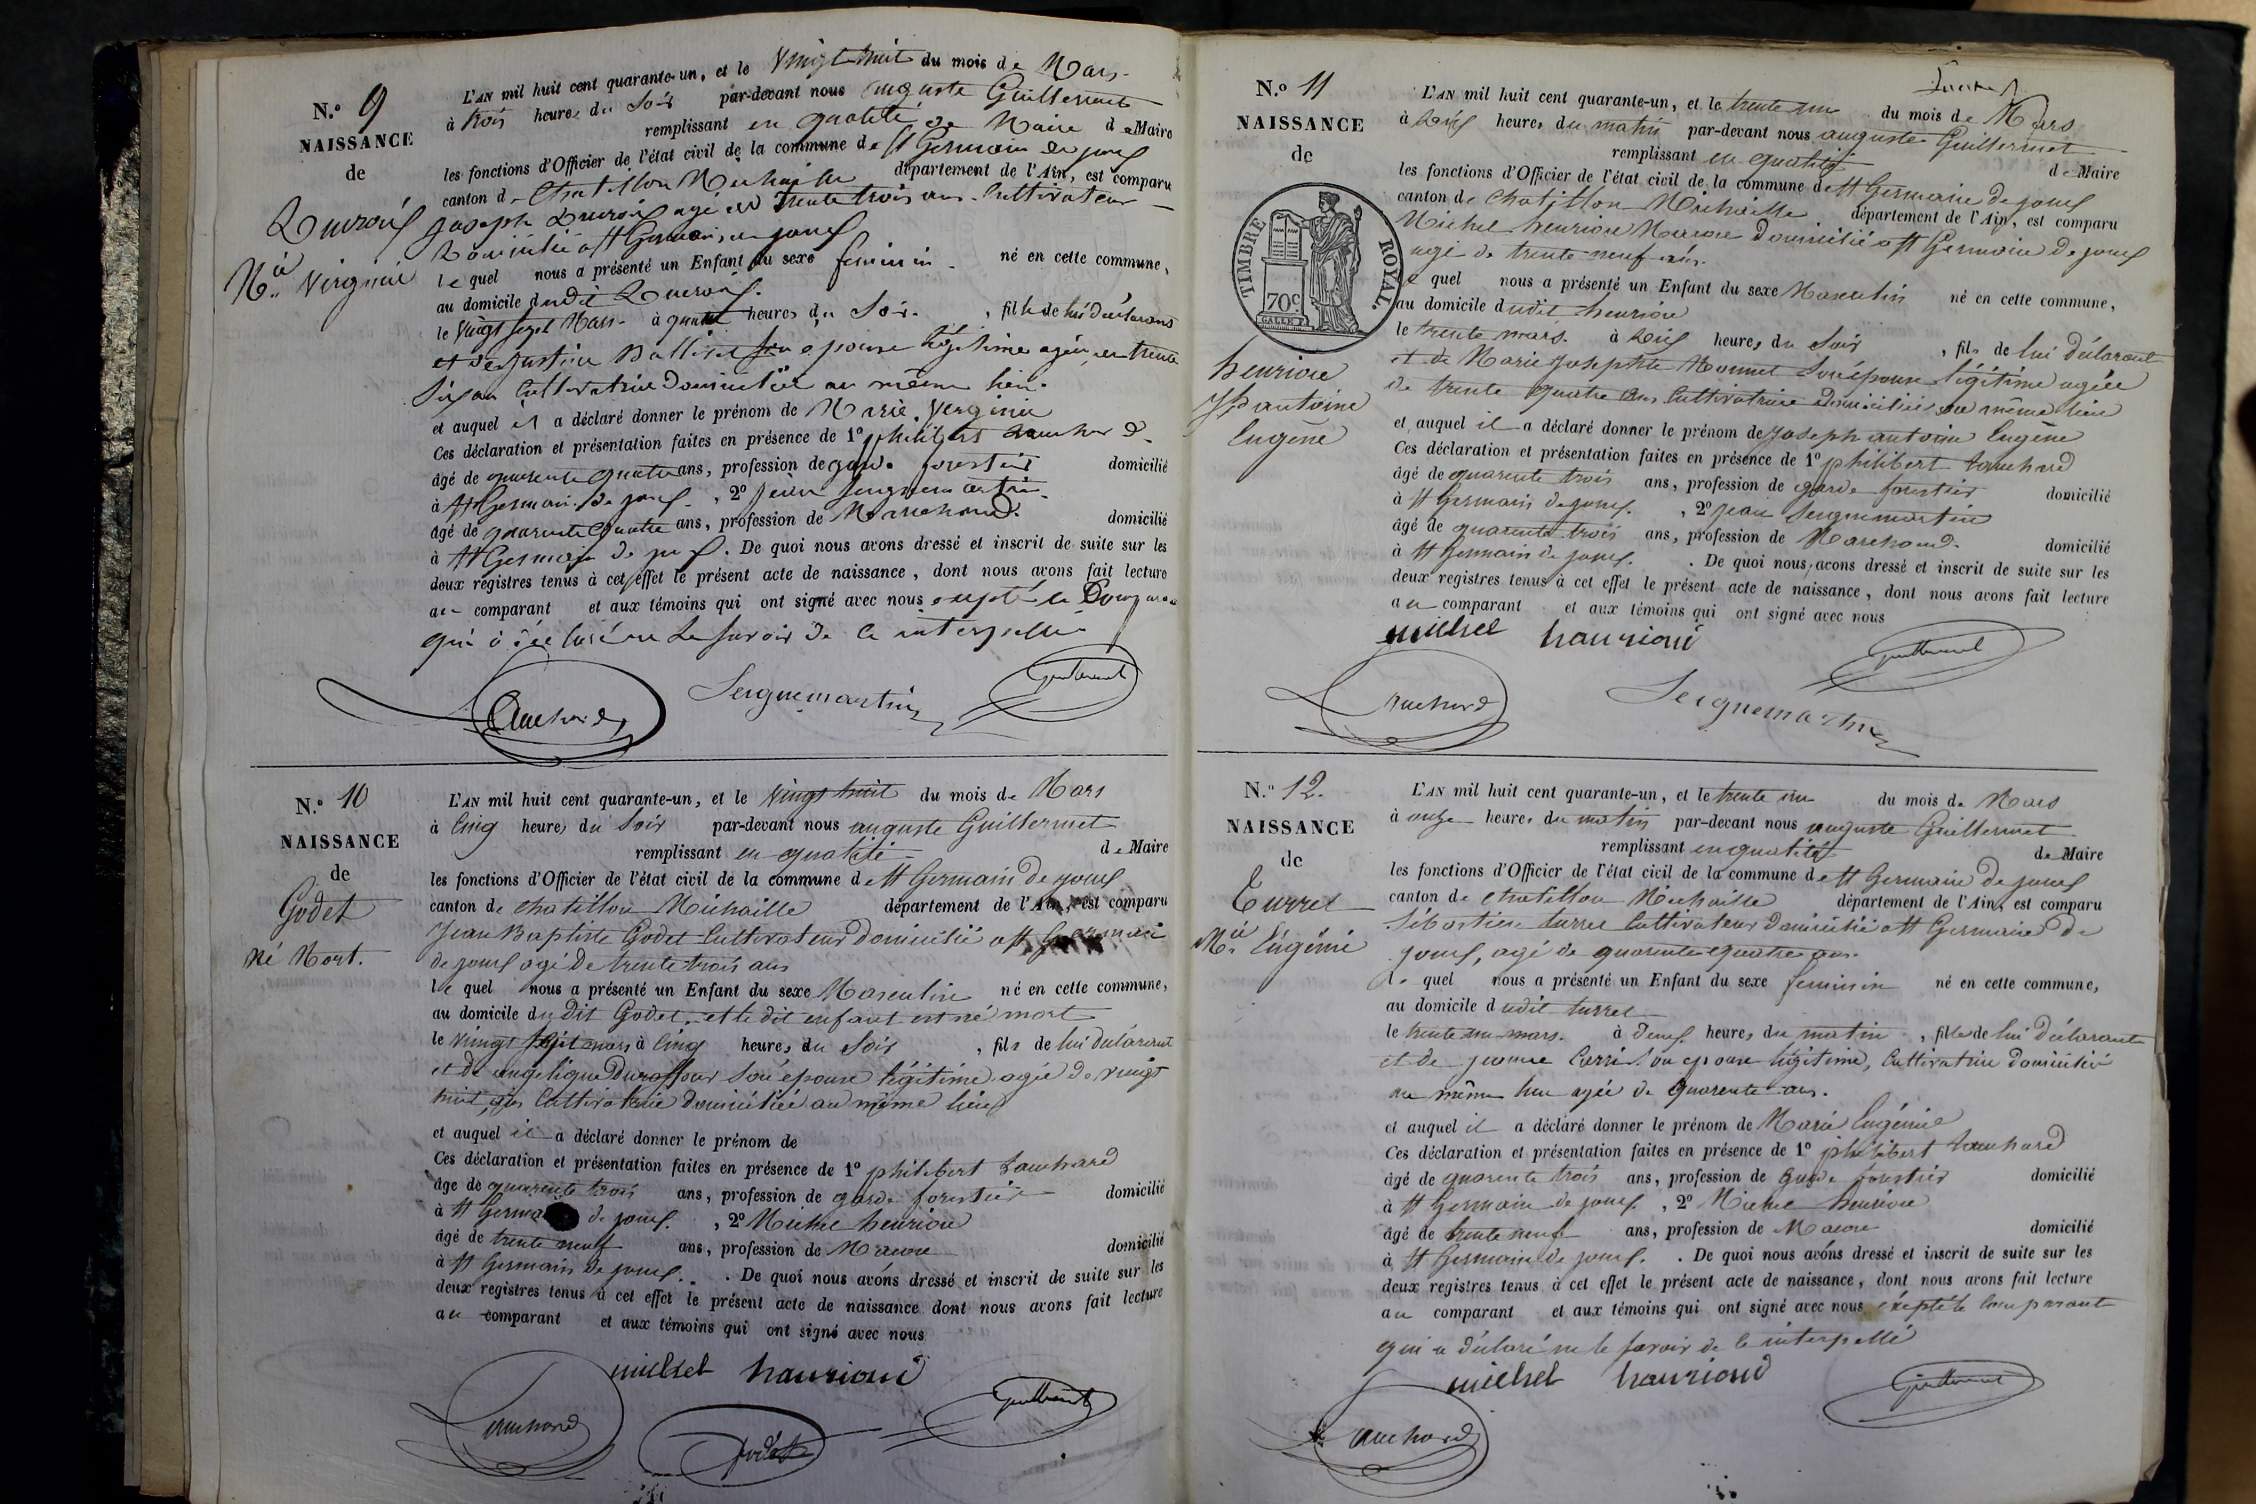 N.º 9
NAISSANCE
de
Ducroix
Mie Virginie
L'AN mil huit cent quarante-un, et le vingt huit du mois de Mars
à trois heures du soir par-devant nous auguste Guillermet
remplissant en qualité de Maire de Maire
les fonctions d'Officier de l'état civil de la commune de St Germain de joux
canton de Chatillon Michaille département de l'Ain, est comparu
joseph Ducroix agé de trente trois ans Cultivateur
Domicilié a St Germain de joux
lequel nous a présenté un Enfant du sexe feminin né en cette commune,
au domicile dudit Ducroix
le vingt sept Mars à quatre heures du Soir, fille de lui déclarant
et de justine Ballivet son epouse légitime agée de trente
Six ans Cultivatrice Domiciliée au même lieu
et auquel il a déclaré donner le prénom de Marie Verginie
Ces déclaration et présentation faites en présence de 1º philibert
âgé de quarente quatre ans, profession de garde forestier domicilié
à St Germain de joux, 2º jean Seignemartin
âgé de quarente quatre ans, profession de Marchand domicilié
à St Germain de joux. De quoi nous avons dressé et inscrit de suite sur les
deux registres tenus à cet effet le présent acte de naissance, dont nous avons fait lecture
au comparant et aux témoins qui ont signé avec nous exepté le Comparant
qui a déclaré ne le savoir de ce interpellé
Seignemartin
Guillermet
N.º 10
NAISSANCE
de
Godet
Né Mort.
L'AN mil huit cent quarante-un, et le vingt huit du mois de Mars
à Cinq heures du Soir par-devant nous auguste Guillermet
remplissant en qualité de Maire
les fonctions d'Officier de l'état civil de la commune de St Germain de joux
canton de Chatillon Michaille département de l'Ain, est comparu
Jean Baptiste Godet Cultivateur domicilié a St Germain
de joux agé de trente trois ans
lequel nous a présenté un Enfant du sexe Masculin né en cette commune,
au domicile dudit Godet, et le dit enfant est né mort
le vingt huit mars à Cinq heures du Soir, fils de lui déclarant
et de angelique Duraffour Son épouse légitime agée de vingt
huit ans Cultivatrice domiciliée au même lieu
et auquel il a déclaré donner le prénom de
Ces déclaration et présentation faites en présence de 1º philibert
âgé de quarente trois ans, profession de garde forestier domicilié
à St Germain de joux, 2º Michel henrion
âgé de trente neuf ans, profession de Macon domicilié
à St Germain de joux. De quoi nous avons dressé et inscrit de suite sur les
deux registres tenus à cet effet le présent acte de naissance dont nous avons fait lecture
au comparant et aux témoins qui ont signé avec nous
michel hanriond
Godet
Guillermet
N.º 11
NAISSANCE
de
TIMBRE ROYAL.
70c
henrion
Jph antoine
Eugène
L'AN mil huit cent quarante-un, et le trente un du mois de Mars
à Dix heures du matin par-devant nous auguste Guillermet
remplissant en qualité de Maire
les fonctions d'Officier de l'état civil de la commune de St Germain de joux
canton de Chatillon Michaille département de l'Ain, est comparu
Michel henrion Macon domicilié a St Germain de joux
agé de trente neuf ans
le quel nous a présenté un Enfant du sexe Masculin né en cette commune,
au domicile dudit henrion
le trente mars à Dix heures du Soir, fils de lui déclarant
et de Marie Josephte Monnet Son épouse légitime agée
de trente quatre ans Cultivatrice domiciliée au même lieu
et auquel il a déclaré donner le prénom de joseph antoine Eugène
Ces déclaration et présentation faites en présence de 1º philibert
âgé de quarente trois ans, profession de garde forestier domicilié
à St Germain de joux, 2º jean Seignemartin
âgé de quarente trois ans, profession de Marchand domicilié
à St Germain de joux. De quoi nous avons dressé et inscrit de suite sur les
deux registres tenus à cet effet le présent acte de naissance, dont nous avons fait lecture
au comparant et aux témoins qui ont signé avec nous
michel hanriond
Guillermet
Seignemartin
N.º 12.
NAISSANCE
de
Turrel
Mie Eugénie
L'AN mil huit cent quarante-un, et le trente un du mois de Mars
à onze heures du matin par-devant nous auguste Guillermet
remplissant en qualité de Maire
les fonctions d'Officier de l'état civil de la commune de St Germain de joux
canton de Chatillon Michaille département de l'Ain, est comparu
Sébastien turrel Cultivateur Domicilié a St Germain de
joux, agé de quarente quatre ans
le quel nous a présenté un Enfant du sexe feminin né en cette commune,
au domicile dudit turrel
le trente un mars à Deux heures du matin, fille de lui déclarant
et de jeanne Son epouse légitime, Cultivatrice domicilié
au même lieu agée de quarente ans.
et auquel il a déclaré donner le prénom de Marie Eugénie
Ces déclaration et présentation faites en présence de 1º philibert
âgé de quarente trois ans, profession de garde forestier domicilié
à St Germain de joux, 2º Michel henrion
âgé de trente neuf ans, profession de Macon domicilié
à St Germain de joux. De quoi nous avons dressé et inscrit de suite sur les
deux registres tenus à cet effet le présent acte de naissance, dont nous avons fait lecture
au comparant et aux témoins qui ont signé avec nous éxepté le Comparant
qui a déclaré ne le savoir de ce interpellé
michel hanriond
Guillermet